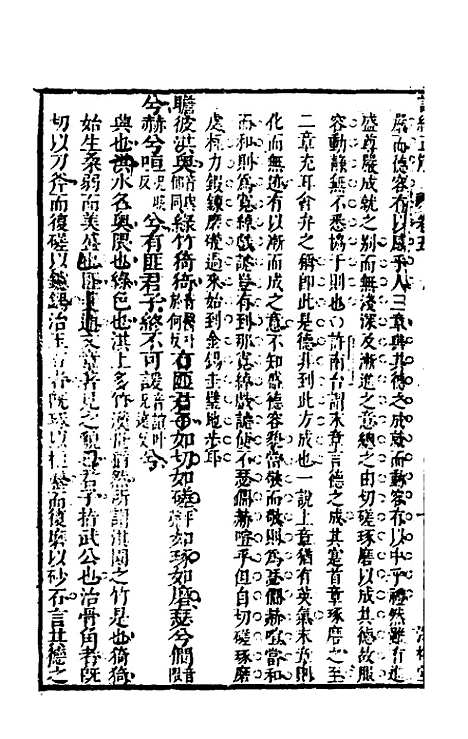 嚴而德容有以感乎人三章興其德之成就而動容有以中乎禮然雖有進
盛尊嚴成就之別而無淺深及漸進之意總之由切磋琢磨以成其德故服
容動靜無不悉協于則也○許南台謂末章言德之成其寔首章琢磨之至
二章充耳會弁之稱即此是德非到此方成也一說上章猶有英氣末章則
化而無迹有以漸而成之意不知盛德容貌當敬而敬則為瑟僩赫喧當和
而和則為寬綽戲謔豈有到那寬綽戲謔便不瑟僩赫喧乎但自切磋琢磨
處極力鍛鍊磨礲過來始到金錫圭璧地步耳
瞻彼淇奧綠竹猗猗有匪君子如切如磋如琢如磨瑟兮僩
兮赫兮咺兮有匪君子終不可諼兮
興也淇水名奧隈也綠色也淇上多竹漢世猶然所謂淇園之竹是也猗猗
始生柔弱而美盛也匪斐通文章著見之貌也君子指武公也治骨角者既
切以刀斧而復磋以鑢鐋治玉石者既琢以槌鑿而復磨以沙石言其德之